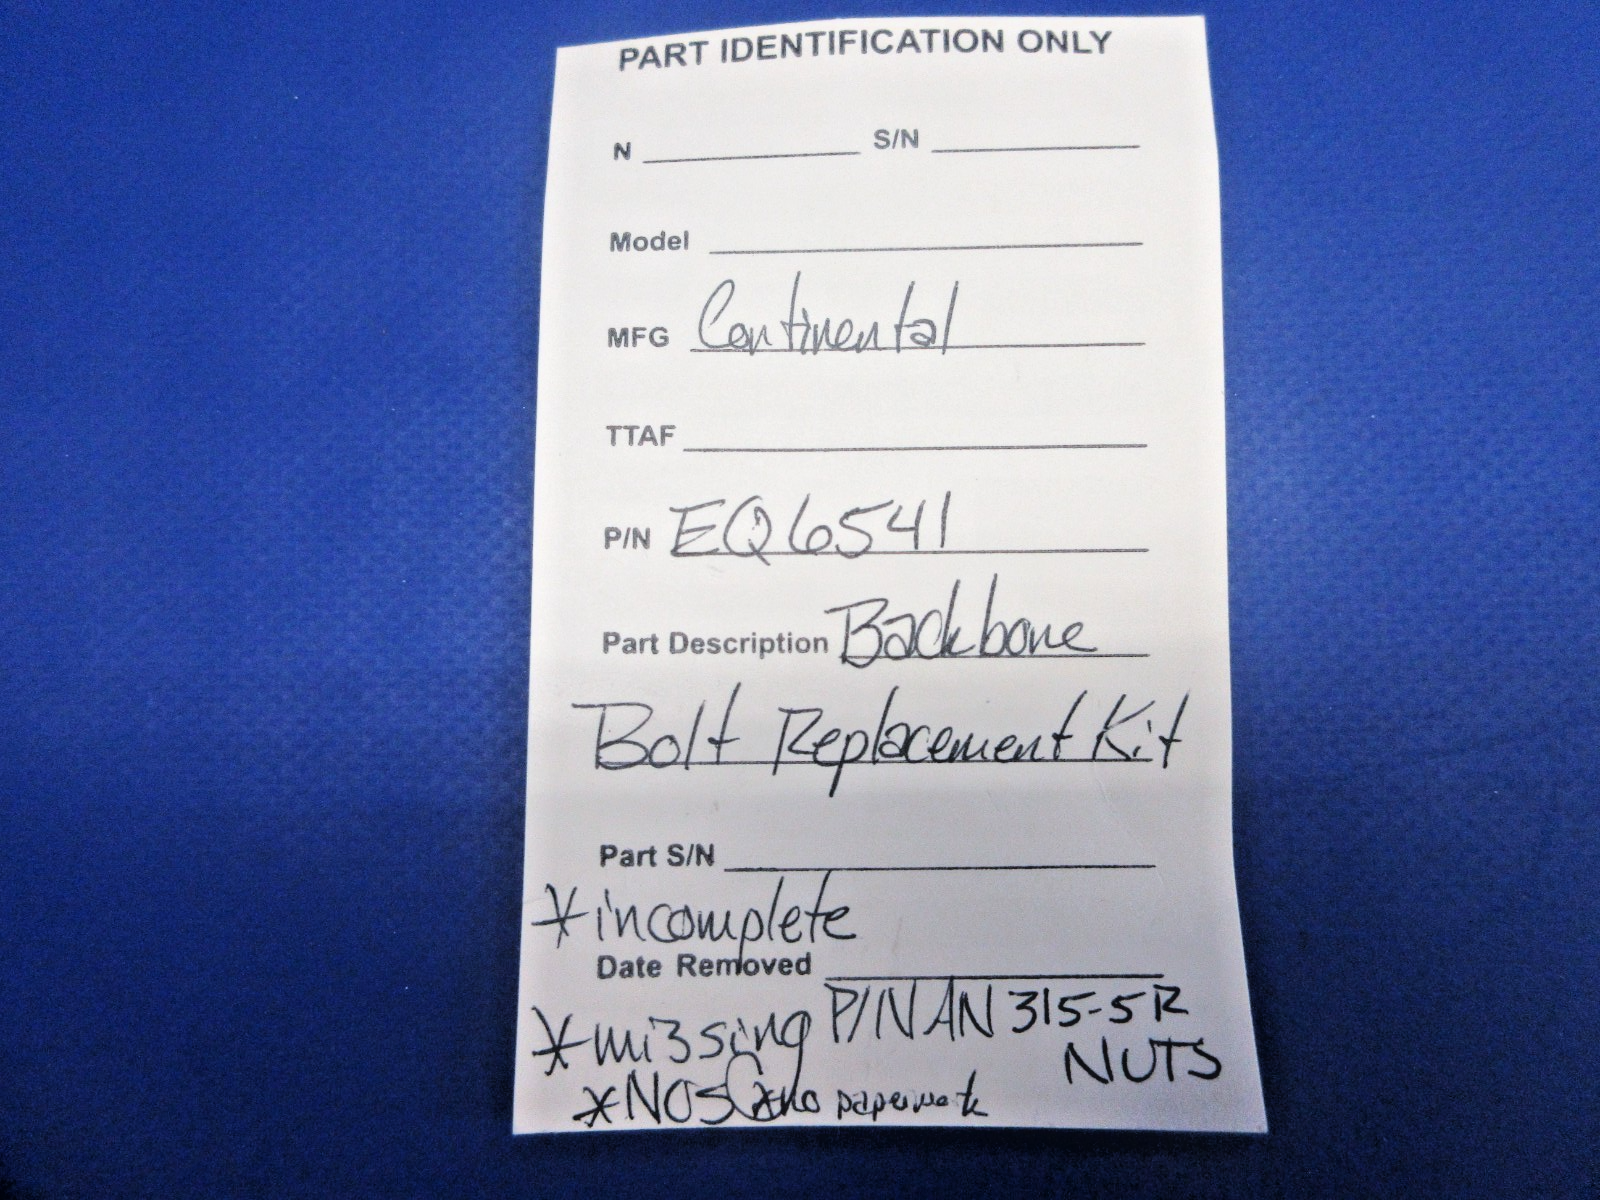 PART IDENTIFICATION ONLY
N S/N
Model
MFG Continental
TTAF
P/N EQ6541
Part Description Backbone
Bolt Replacement Kit
Part S/N
*incomplete
Date Removed
*missing P/N AN 315-5R
NUTS
*NOS *no paperwork